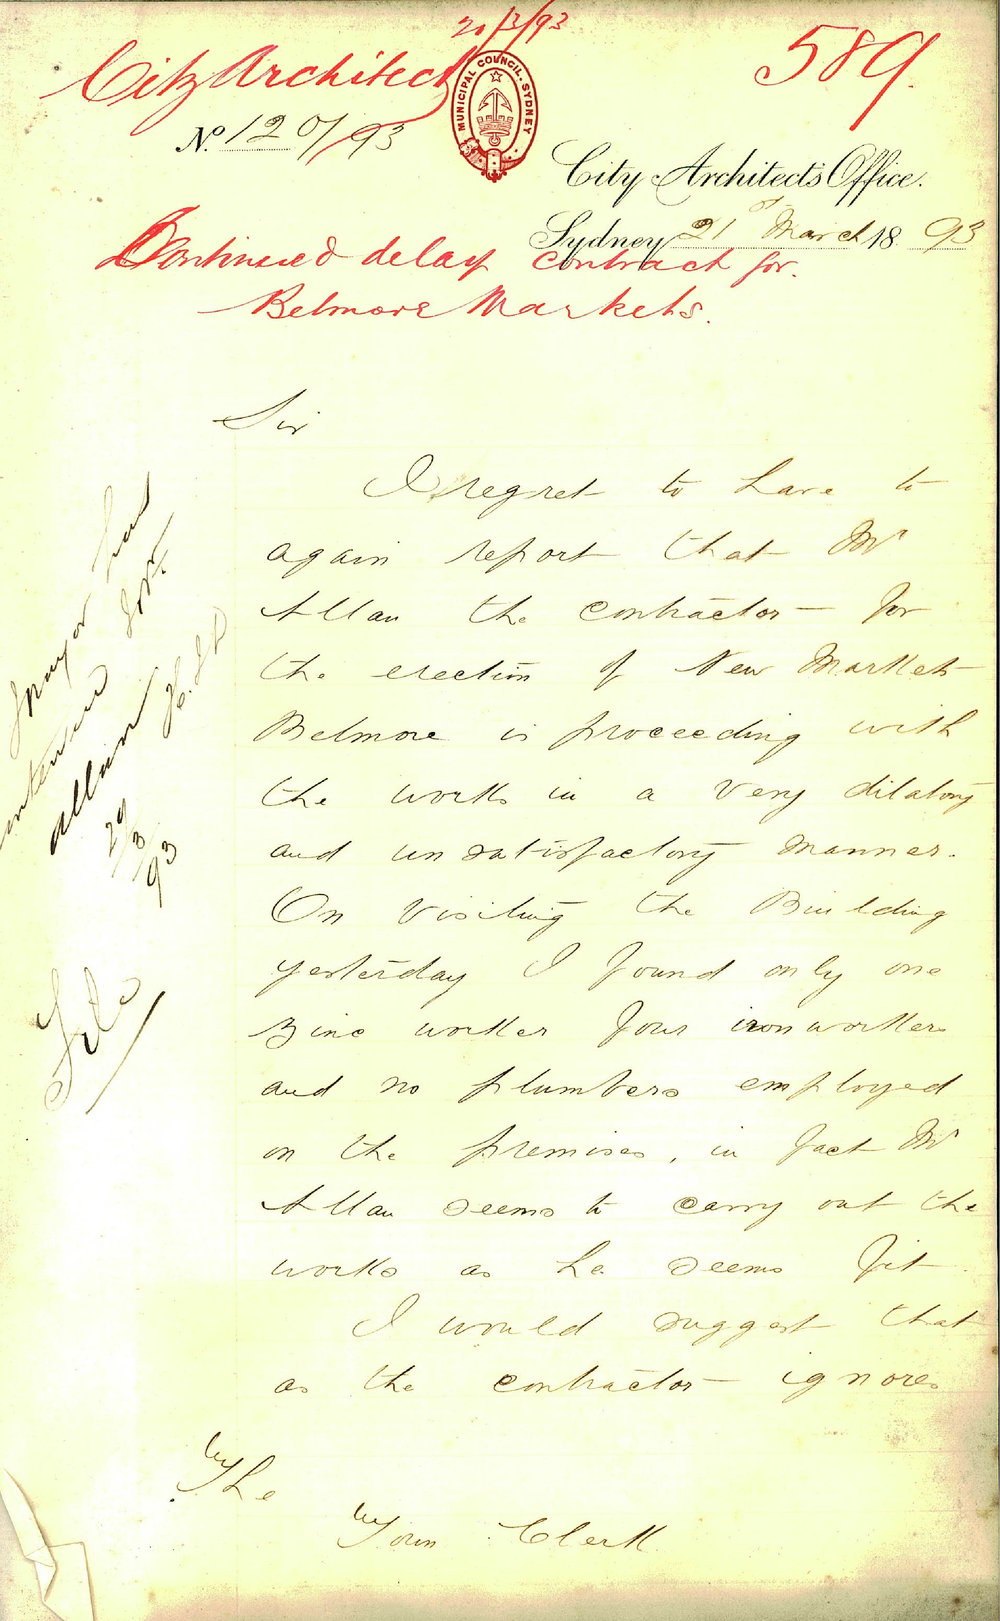 21/3/93
City Architect
589.
MUNICIPAL COUNCIL. SYDNEY
No. 120/93
City Architect's Office.
Sydney 21st March 1893
Continued delay contract for
Belmore Markets.
Sir
I regret to have to
again report that Mr
Allan the contractor for
the erection of New Markets
Belmore is proceeding with
the works in a very dilatory
and unsatisfactory manner.
On visiting the Building
yesterday I found only one
zinc worker four ironworkers
and no plumbers employed
on the premises, in fact Mr
Allan seems to carry out the
works as he seems fit
I would suggest that
as the contractor ignores
The
Town Clerk
Mayor has
Allan
29/3/93
File